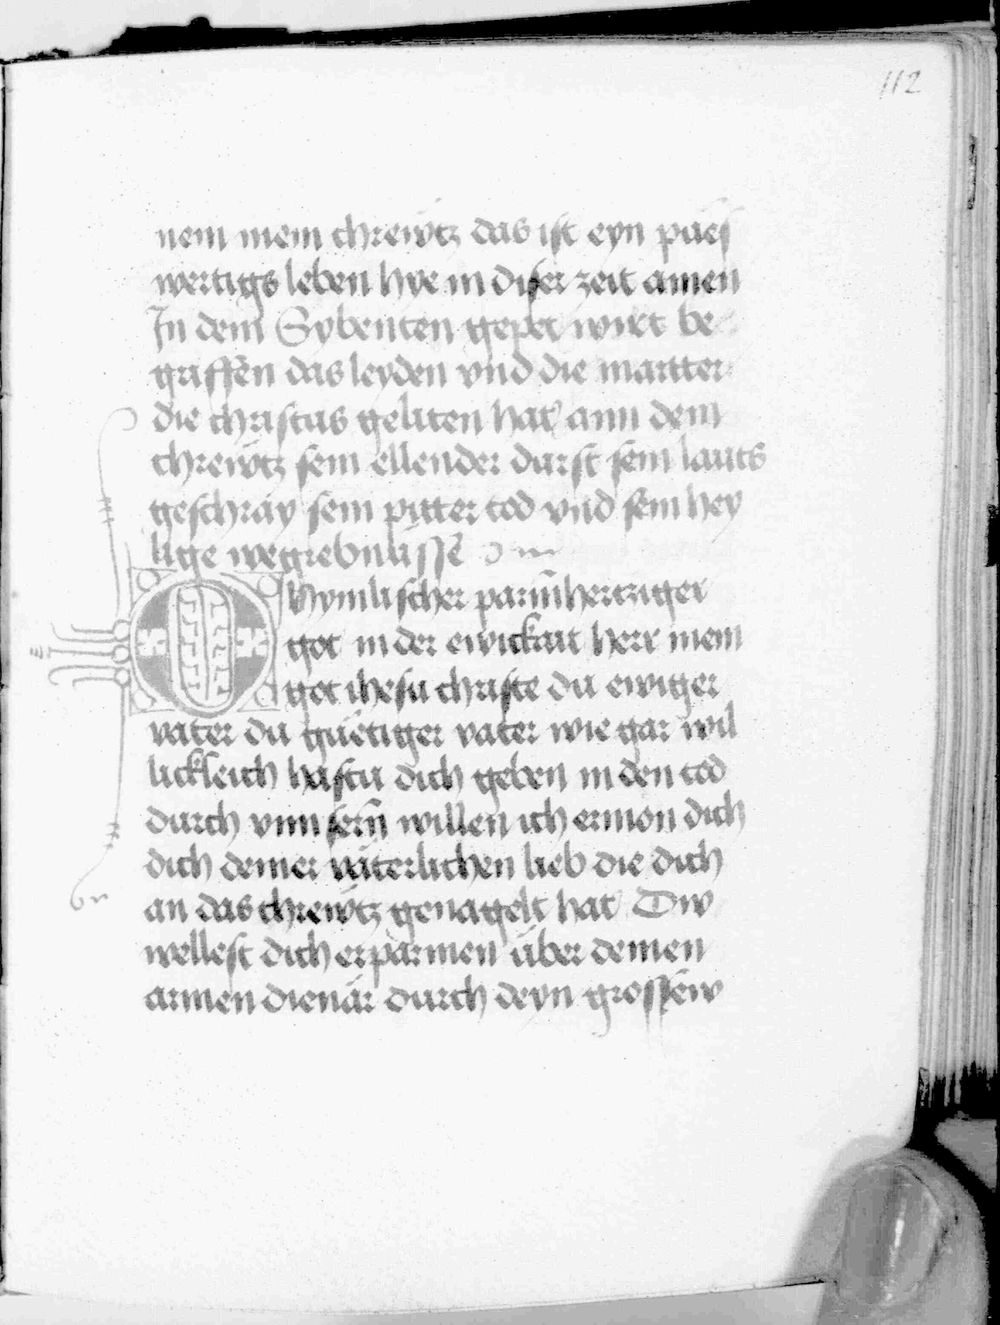 112
nem mein chrewtz das ist eyn pues
wertigs leben hye in diser zeit amen
In dem Sybenten gepet wirt be
griffen das leyden vnd die martter
die christus geliten hat ann dem
chrewtz sein ellender durst sein lauts
geschray sein pitter tod vnd sein hey
lige wegrebnusse
O hymlischer parmhertziger
got in der ewickait herr mein
got ihesu christe du ewiger
vater du guetiger vater wie gar wil
lickleich hastu dich geben in den tod
durch vnnsern willen ich ermon dich
dich deiner väterlichen lieb die dich
an das chrewtz genagelt hat Diw
wellest dich erparmen über deinen
armen dienär durch deyn grossew